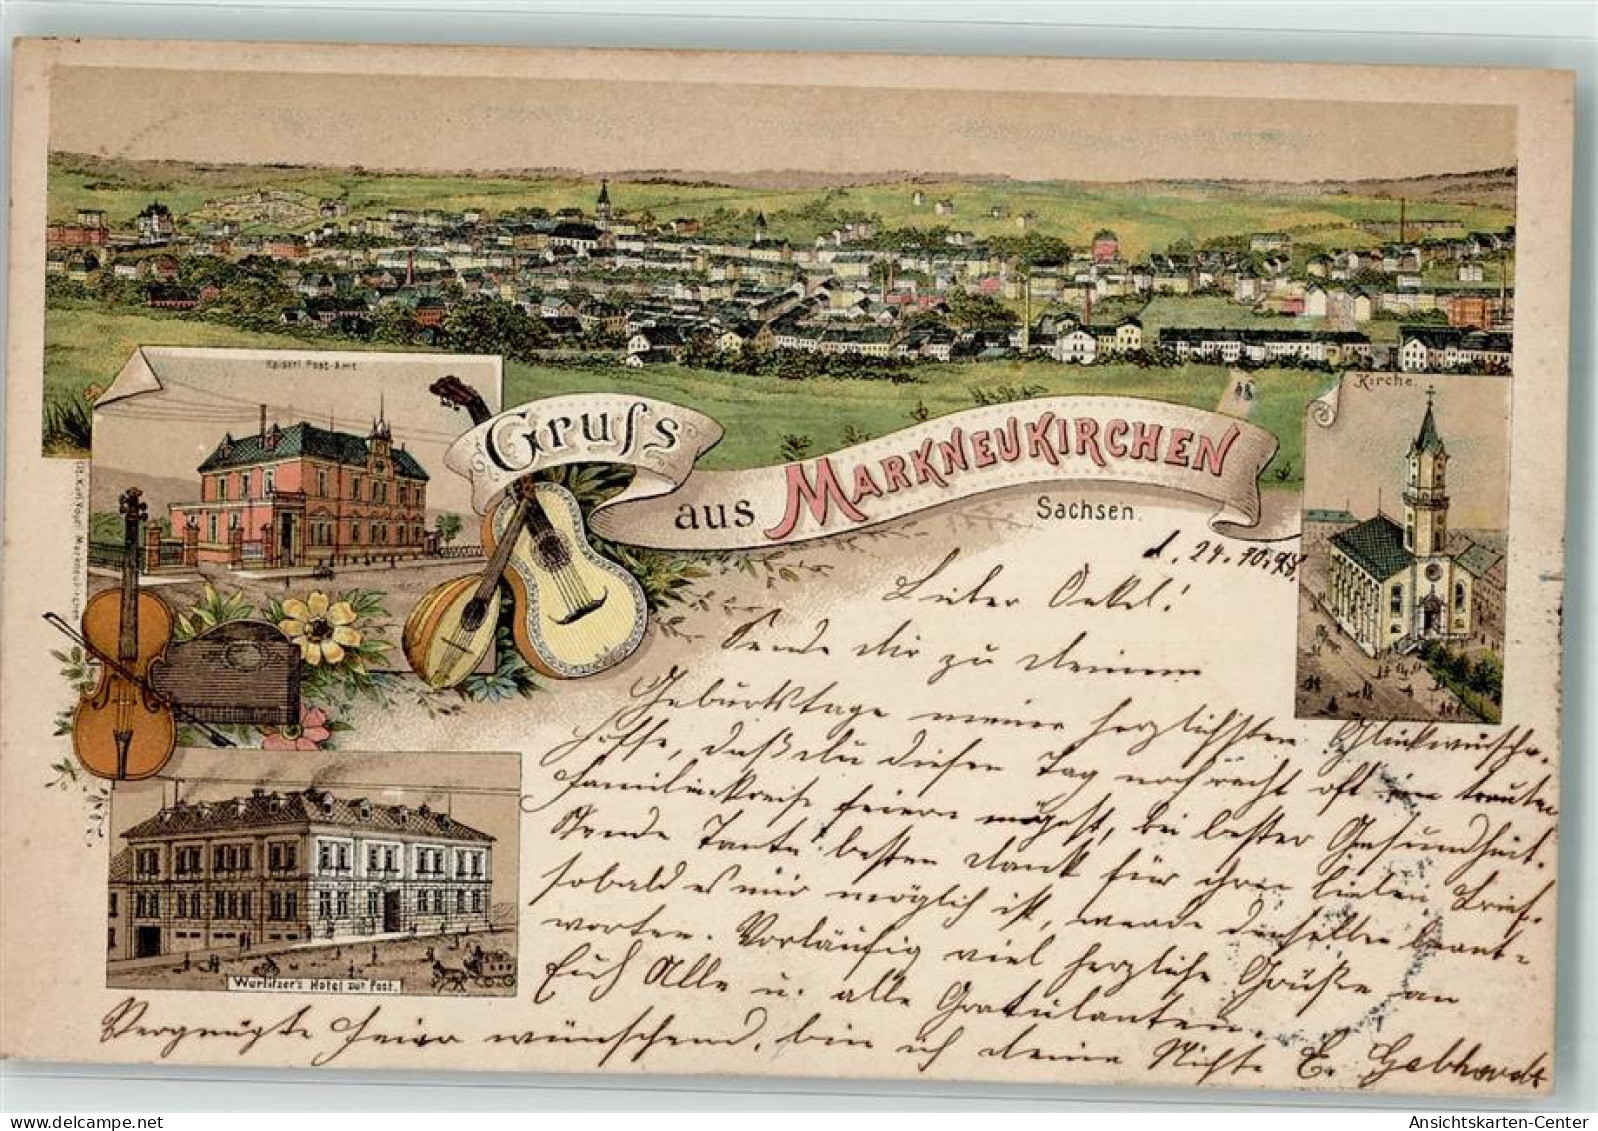 Kaiserl. Post-Amt
Kirche.
Gruss
aus MARKNEUKIRCHEN
Sachsen.
Wurlitzer's Hotel zur Post.
d. 24.10.98.
Lieber Onkel!
Sende dir zu deinem
Geburtstage meine herzlichsten Glückwünsche.
Hoffe, daß du diesen Tag noch recht oft im trauten
Familienkreise feiern mögest, bei bester Gesundheit.
Tante besten Dank für ihren lieben Brief.
sobald es mir möglich ist, werde denselben beant-
worten. Vorläufig viel herzliche Grüße an
Euch Alle u. alle Gratulanten.
Vergnügte Feier wünschend, bin ich deine Nichte E. Gebhardt
Ansichtskarten-Center